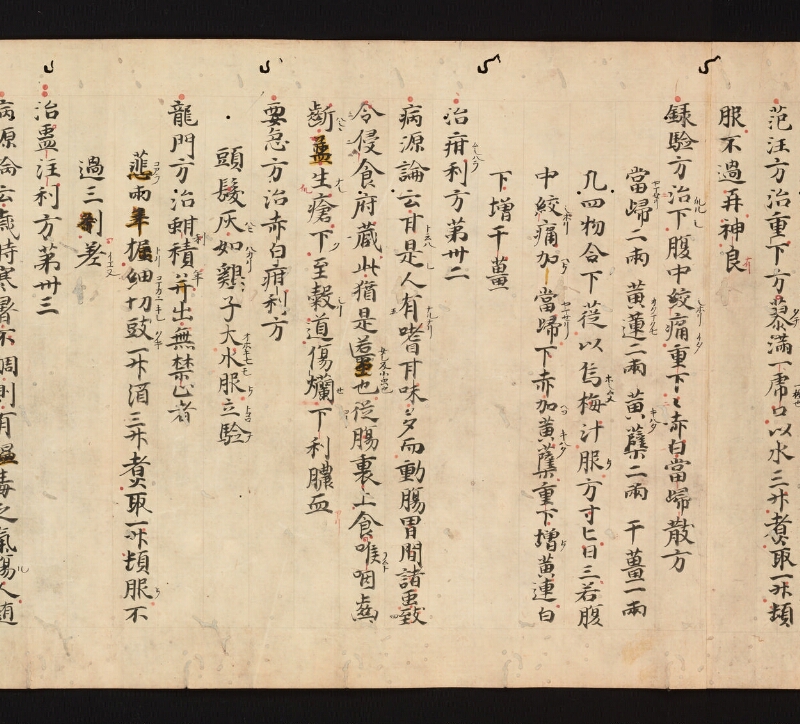 范汪方治重下方藜滿一虎口以水三升煮取一升頓
服不過再神良
録驗方治下腹中絞痛重下〻赤白當歸散方
當歸二兩 黄蓮二兩 黄蘗二兩 干薑一兩
凡四物合下蓰以烏梅汁服方寸匕日三若腹
中絞痛加當歸下赤加黄蘗重下増黄連白
下増干薑
治疳利方第卅二
病源論云甘是人有嗜甘味多而動腸胃間諸虫致
令侵食府藏此猶是䘌也從腸裏上食喉咽齒
齗並生瘡下至穀道傷爛下利膿血
要急方治赤白疳利方
頭髮灰如鷄子大水服立驗
龍門方治疳積年出無禁止者
薤兩握細切豉一升酒三升煮取一升頓服不
過三剤差
治蠱注利方第卅三
病源論云歳時寒暑不調則有濕毒之氣傷人随